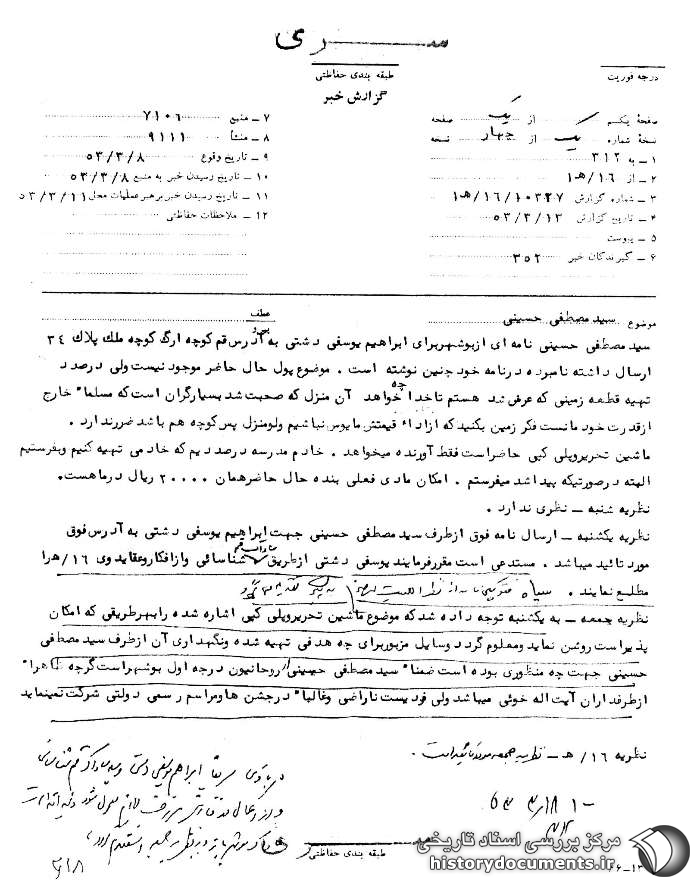 ســـری
طبقه بندی حفاظتی
درجه فوریت
گزارش خبر
صفحهٔ یکم از یک صفحه
نسخهٔ شماره یک از چهار نسخه
۱ ـ به ۳۱۲
۲ ـ از ۱۶/هـ۱
۳ ـ شماره گزارش ۱۰۳۴۷/۱۶/هـ۱
۴ ـ تاریخ گزارش ۵۳/۳/۱۳
۵ ـ پیوست
۶ ـ گیرندگان خبر ۳۵۲
۷ ـ منبع ۷۱۰۶
۸ ـ منشأ ۹۱۱۱
۹ ـ تاریخ وقوع ۵۳/۳/۸
۱۰ ـ تاریخ رسیدن خبر به منبع ۵۳/۳/۸
۱۱ ـ تاریخ رسیدن خبر برهبر عملیات محل ۵۳/۳/۱۱
۱۲ ـ ملاحظات حفاظتی
موضوع سید مصطفی حسینی
عطف
بخبر
سید مصطفی حسینی نامه ای از بوشهر برای ابراهیم یوسفی دشتی به آدرس قم کوچه ارگ کوچه ملک پلاک ۳۴
ارسال داشته نامبرده در نامه خود چنین نوشته است . موضوع پول حال حاضر موجود نیست ولی در صدد
تهیه قطعه زمینی که عرض شد هستم تا خدا چه خواهد آن منزل که صحبت شد بسیار گران است که مسلما" خارج
از قدرت خود مانست فکر زمین بکنید که از اداء قیمتش مایوس نباشیم ولو منزل پس کوچه هم باشد ضرر ندارد .
ماشین تحریر و پلی کپی حاضر است فقط آورنده میخواهد . خادم مدرسه در صددیم که خادمی تهیه کنیم و بفرستیم
البته در صورتیکه پیدا شد میفرستم . امکان مادی فعلی بنده حال حاضر همان ۲۰۰۰۰ ریال در ماهست .
نظریه شنبه ـ نظری ندارد .
نظریه یکشنبه ـ ارسال نامه فوق از طرف سید مصطفی حسینی جهت ابراهیم یوسفی دشتی به آدرس فوق
مورد تائید میباشد . مستدعی است مقرر فرمایند یوسفی دشتی از طریق ساواک قم شناسائی و از افکار و عقاید وی ۱۶/هـ را
مطلع نمایند .
نظریه جمعه ـ به یکشنبه توجه داده شد که موضوع ماشین تحریر و پلی کپی اشاره شده را بهر طریقی که امکان
پذیر است روشن نماید و معلوم گردد وسایل مزبور برای چه هدفی تهیه شده و نگهداری آن از طرف سید مصطفی
حسینی جهت چه منظوری بوده است ضمنا" سید مصطفی حسینی از روحانیون درجه اول بوشهر است گرچه ظاهرا"
از طرفداران آیت اله خوئی میباشد ولی فردیست ناراضی و غالبا" در جشن ها و مراسم رسمی دولتی شرکت نمینماید
نظریه ۱۶/هـ ـ نظریه جمعه مورد تائید است .
طبقه بندی حفاظتی
سری
مرکز بررسی اسناد تاریخی
historydocuments.ir